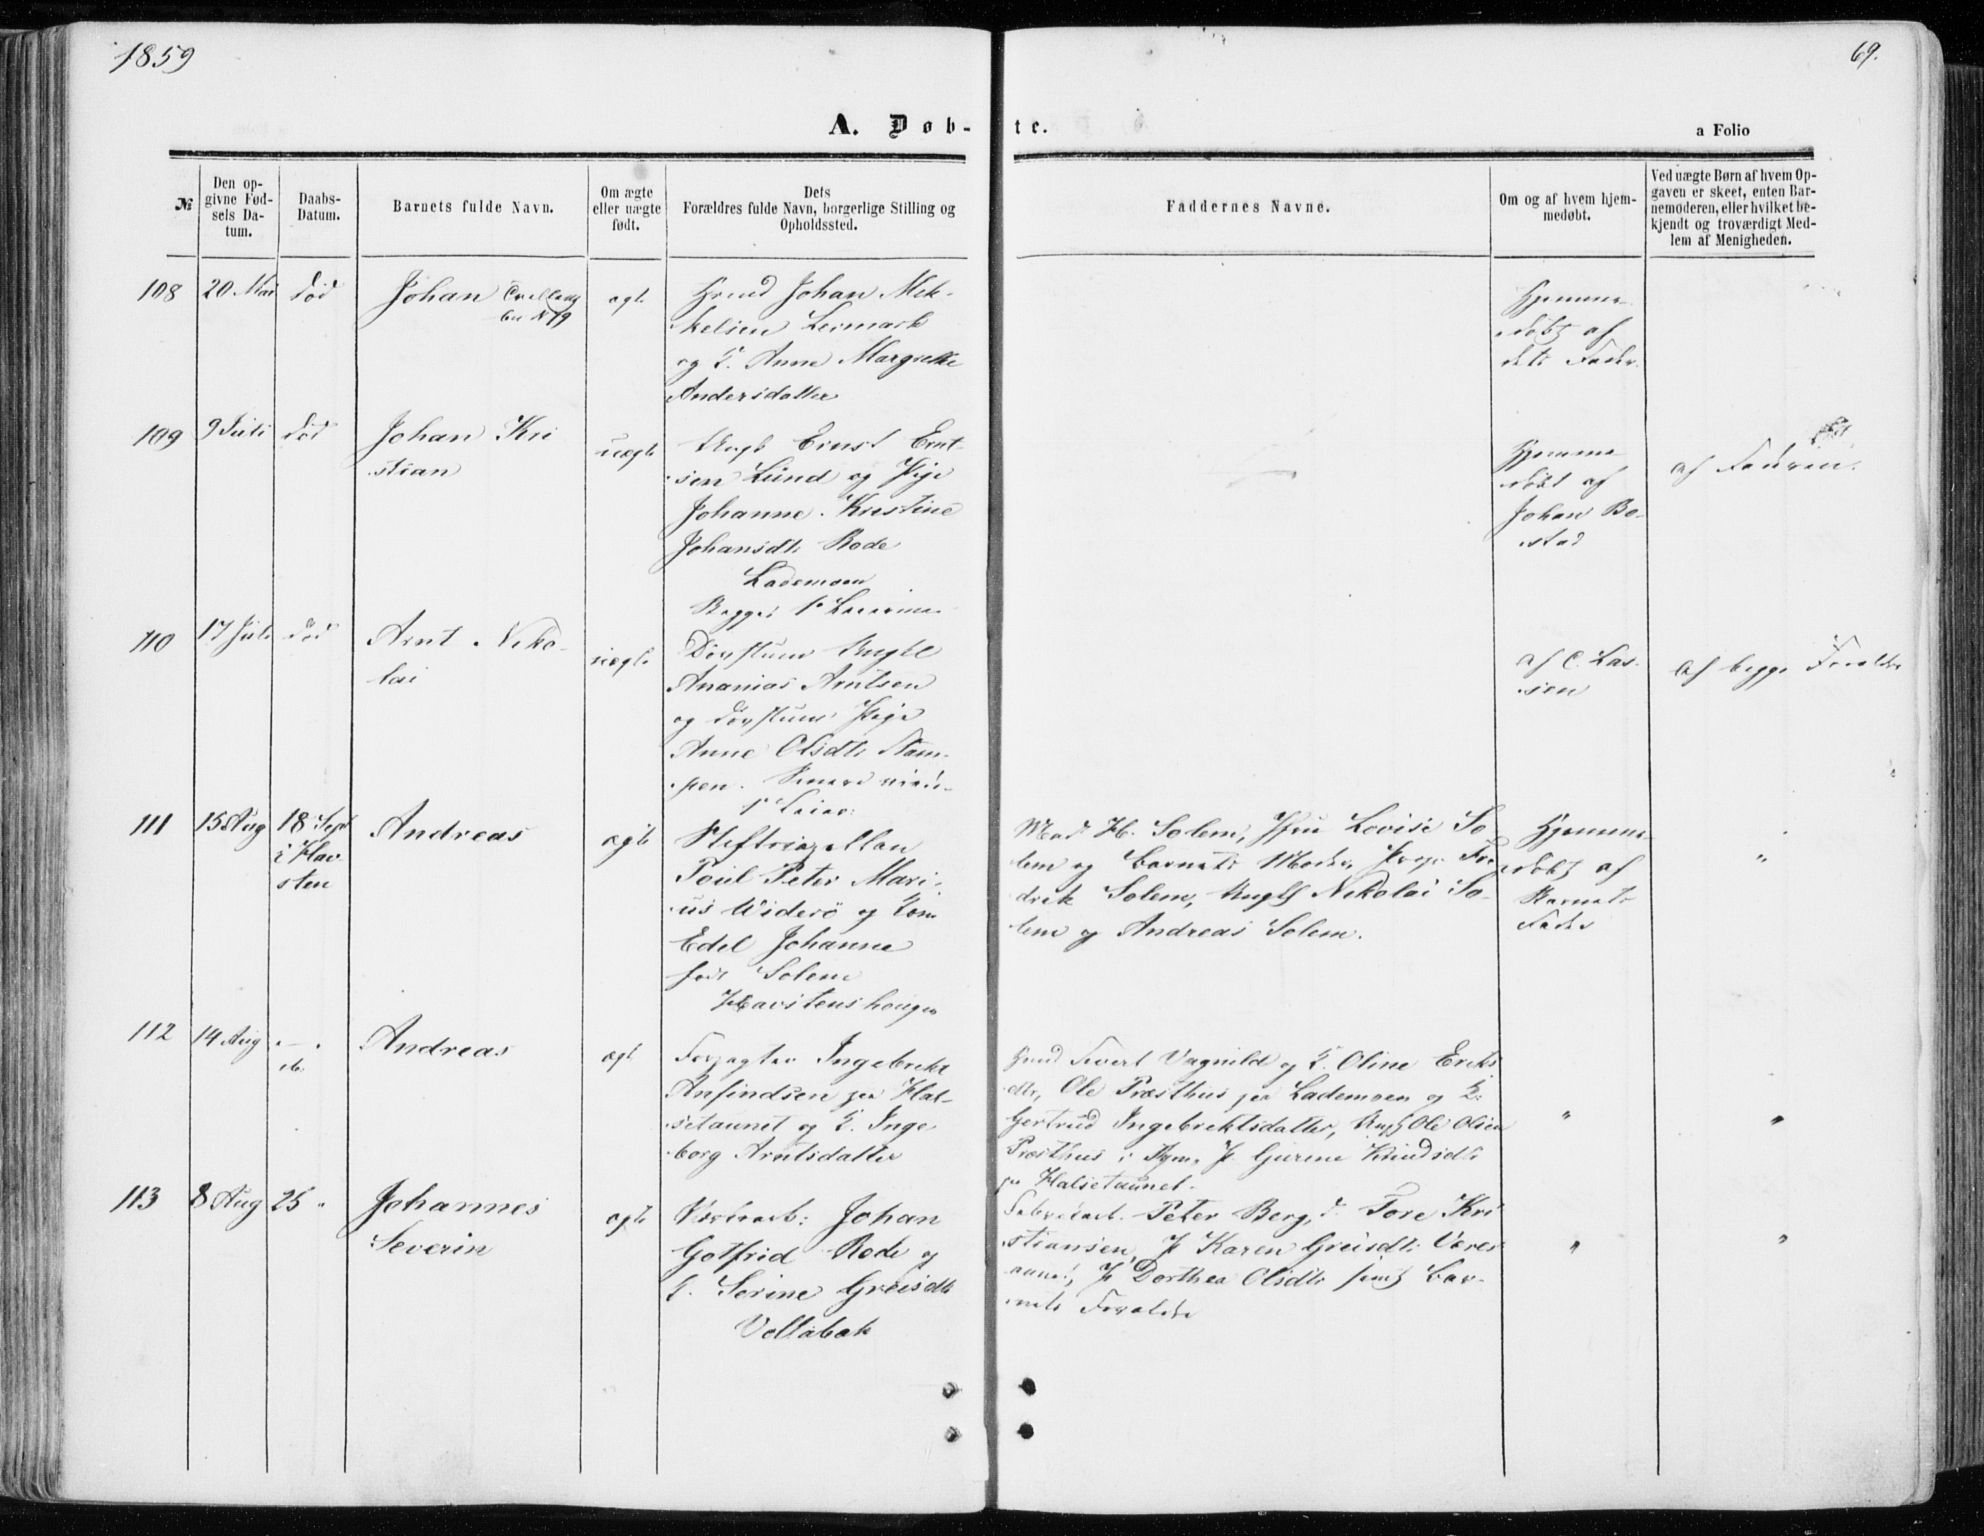 1859
69.
A. Døb-
te.
a Folio
№
Den op-
givne Fød-
sels Da-
tum.
Daabs-
Datum.
Barnets fulde Navn.
Om ægte
eller uægte
født.
Dets
Forældres fulde Navn, borgerlige Stilling og
Opholdssted.
Faddernes Navne.
Om og af hvem hjem-
medøbt.
Ved uægte Børn af hvem Op-
gaven er skeet, enten Bar-
nemoderen, eller hvilket be-
kjendt og troværdigt Med-
lem af Menigheden.
108
20 Mai
død
Johan
ægte
Johan Mik-
kelsen Leirmark
og K. Anne Margrethe
Andersdatter
Hjemme-
døbt af
dets Fader
109
9 Juli
død
Johan Kri
stian
uægte
Ungk Ernst Ernt-
sen Lund og Pige
Johanne Kristine
Johansdtr Rode
Lademoen
Begges 1ste
Hjemme
døbt af
Johan Bo-
stad
af Faderen.
110
17 Juli
død
Arnt Niko-
lai
uægte
Døvstum Ungkl
Ananias Arntsen
og døvstum Pige
Anne Olsdtr Stam-
pen.
af C. Las-
sen
af begge Forældre
111
15 Aug
18 Sept
i Hav
sten
Andreas
ægte
Stiftscapellan
Poul Peter Mari-
us Widerö og Kone
Edel Johanne
født Solem
Havstenshougen
Mad. H. Solem, Jfru Lovise So
lem og Barnets Moder, Prop. Fre
drik Solem, Ungk Nikolai So-
lem og Andreas Solem.
Hjemme-
døbt af
Barnets
Fader
"
112
14 Aug
- .
ib.
Andreas
ægte
Forpagter Ingebrikt
Anfindsen paa Hal-
setaunet og K. Inge
borg Arntsdatter
Sivert Vognild og K. Oline Eriks
dtr, Ole Præsthus paa Lademoen og K.
Gertrud Ingebrektsdatter, Ungk Ole Olsen
Præsthus i Byen, P. Gurine Knudsdtr
pa Halsetaunet.
"
"
113
8 Aug
25 "
Johannes
Severin
ægte
Johan
Gotfrid Rode og
K. Serine Greisdtr
Vollabak
Peter Berg, d. Tore Kri
stiansen, P Karen Greisdtr
P Dorthea Olsdtr samt Bar-
nets Forældre
"
"